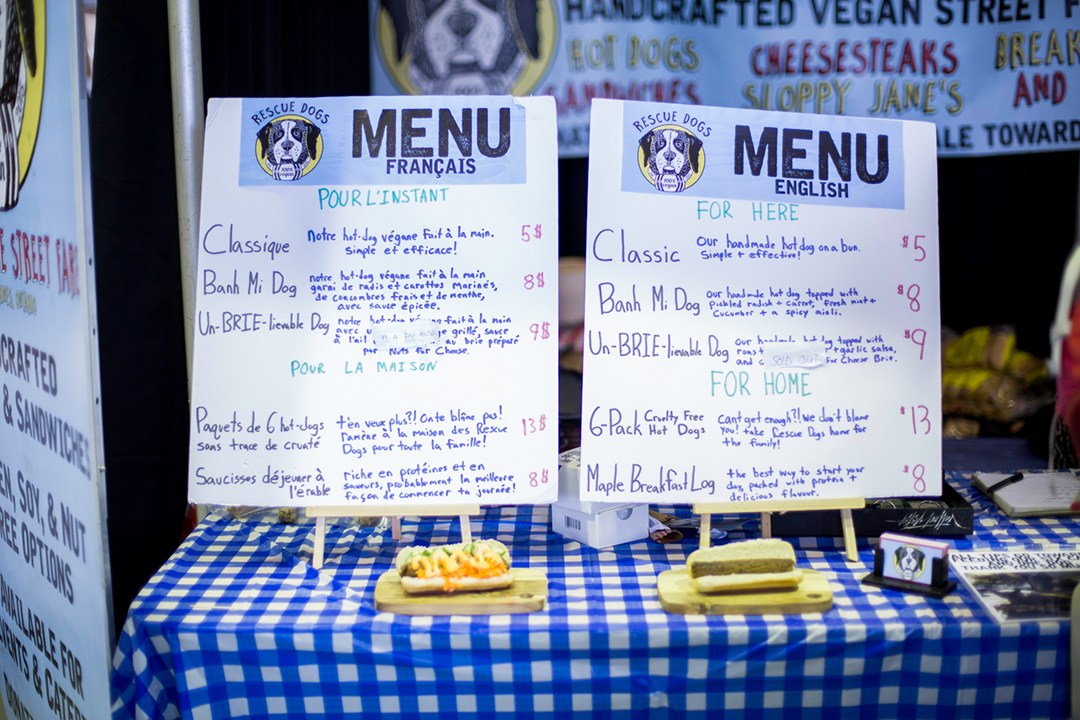 HANDCRAFTED VEGAN STREET F
HOT DOGS CHEESESTEAKS BREAK
SANDWICHES SLOPPY JANE'S AND
ALE TOWARD
RESCUE DOGS
100% vegan
MENU
FRANÇAIS
POUR L'INSTANT
Classique notre hot-dog végane fait à la main. 5$
Simple et efficace!
Banh Mi Dog notre hot-dog végane fait à la main 8$
garni de radis et carottes marinés,
de concombres frais et de menthe,
avec sauce épicée.
Un-BRIE-lievable Dog notre hot-dog végane fait à la main 9$
avec grillé, sauce
à l'ail au brie préparé
par Nuts for Cheese.
POUR LA MAISON
Paquets de 6 hot-dogs t'en veux plus?! On te blâme pas! 13$
sans trace de cruaté ramène à la maison des Rescue
Dogs pour toute la famille!
Saucisses déjeuner à riche en protéines et en 8$
l'érable saveurs, probablement la meilleure
façon de commencer ta journée!
RESCUE DOGS
100% vegan
MENU
ENGLISH
FOR HERE
Classic Our handmade hot dog on a bun. $5
Simple + effective!
Banh Mi Dog Our handmade hot dog topped with $8
Pickled radish + carrot, fresh mint +
Cucumber + a spicy aioli.
Un-BRIE-lievable Dog our handmade hot dog topped with $9
roast + garlic salsa,
and SOLD OUT For Cheese Brie.
FOR HOME
6-Pack Cruelty Free Hot Dogs Can't get enough?! We don't blame $13
you! take Rescue Dogs home for
the family!
Maple Breakfast Log the best way to start your $8
day, packed with protein +
delicious flavour.
E STREET FARE
CRAFTED
& SANDWICHES
EN, SOY, & NUT
REE OPTIONS
AVAILABLE FOR
VENTS & CATER